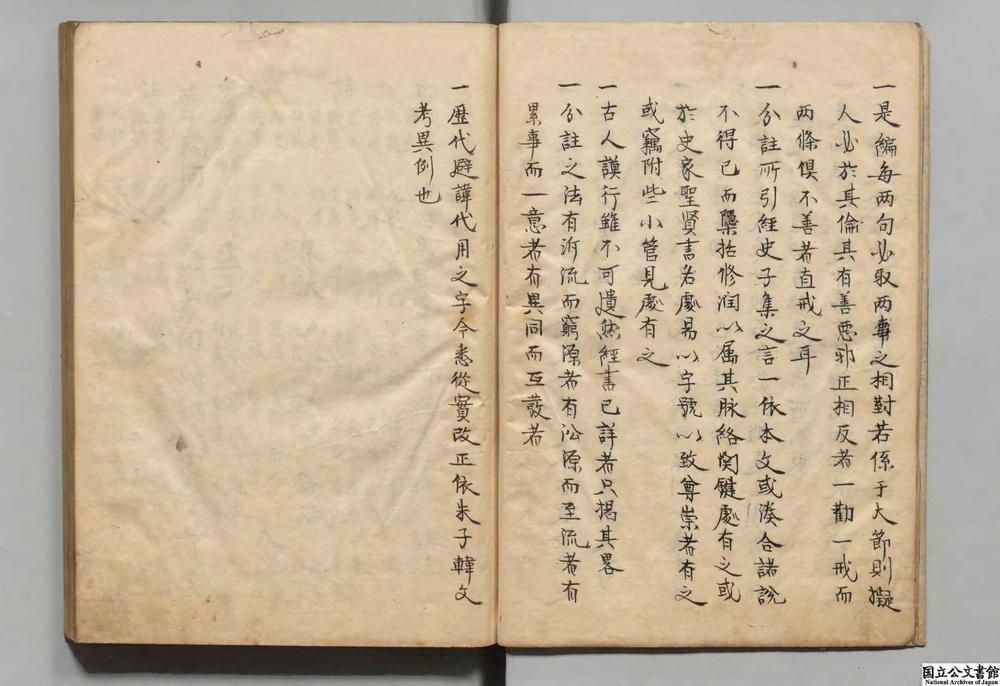 一是編每两句必取两事之相對若係于大節則擬
人必於其倫其有善惡邪正相反者一勸一戒而
两條俱不善者直戒之耳
一分註所引經史子集之言一依本文或湊合諸說
不得已而檃括修润以属其脉絡関鍵處有之或
於史家聖賢言名處易以字號以致尊崇者有之
或竊附些小管見處有之
一古人謨行雖不可遺然經書已詳者只揭其畧
一分註之法有沂流而窮源者有沿源而至流者有
累事而一意者有異同而互蔎者
一歷代避諱代用之字今悉從實改正依朱子韓文
考異例也
国立公文書館
National Archives of Japan